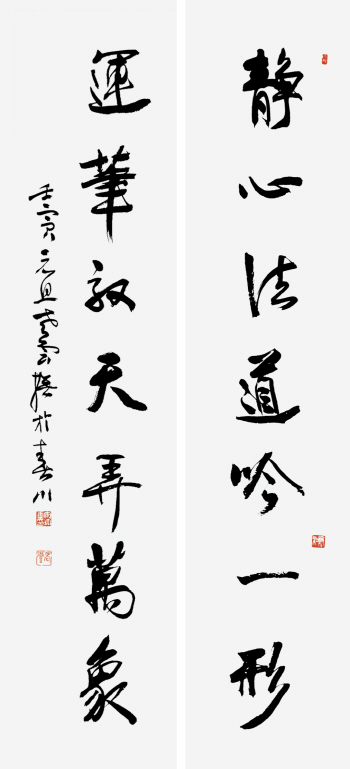 静心法道吟一形
運筆天弄萬象
壬寅元旦雲於春川